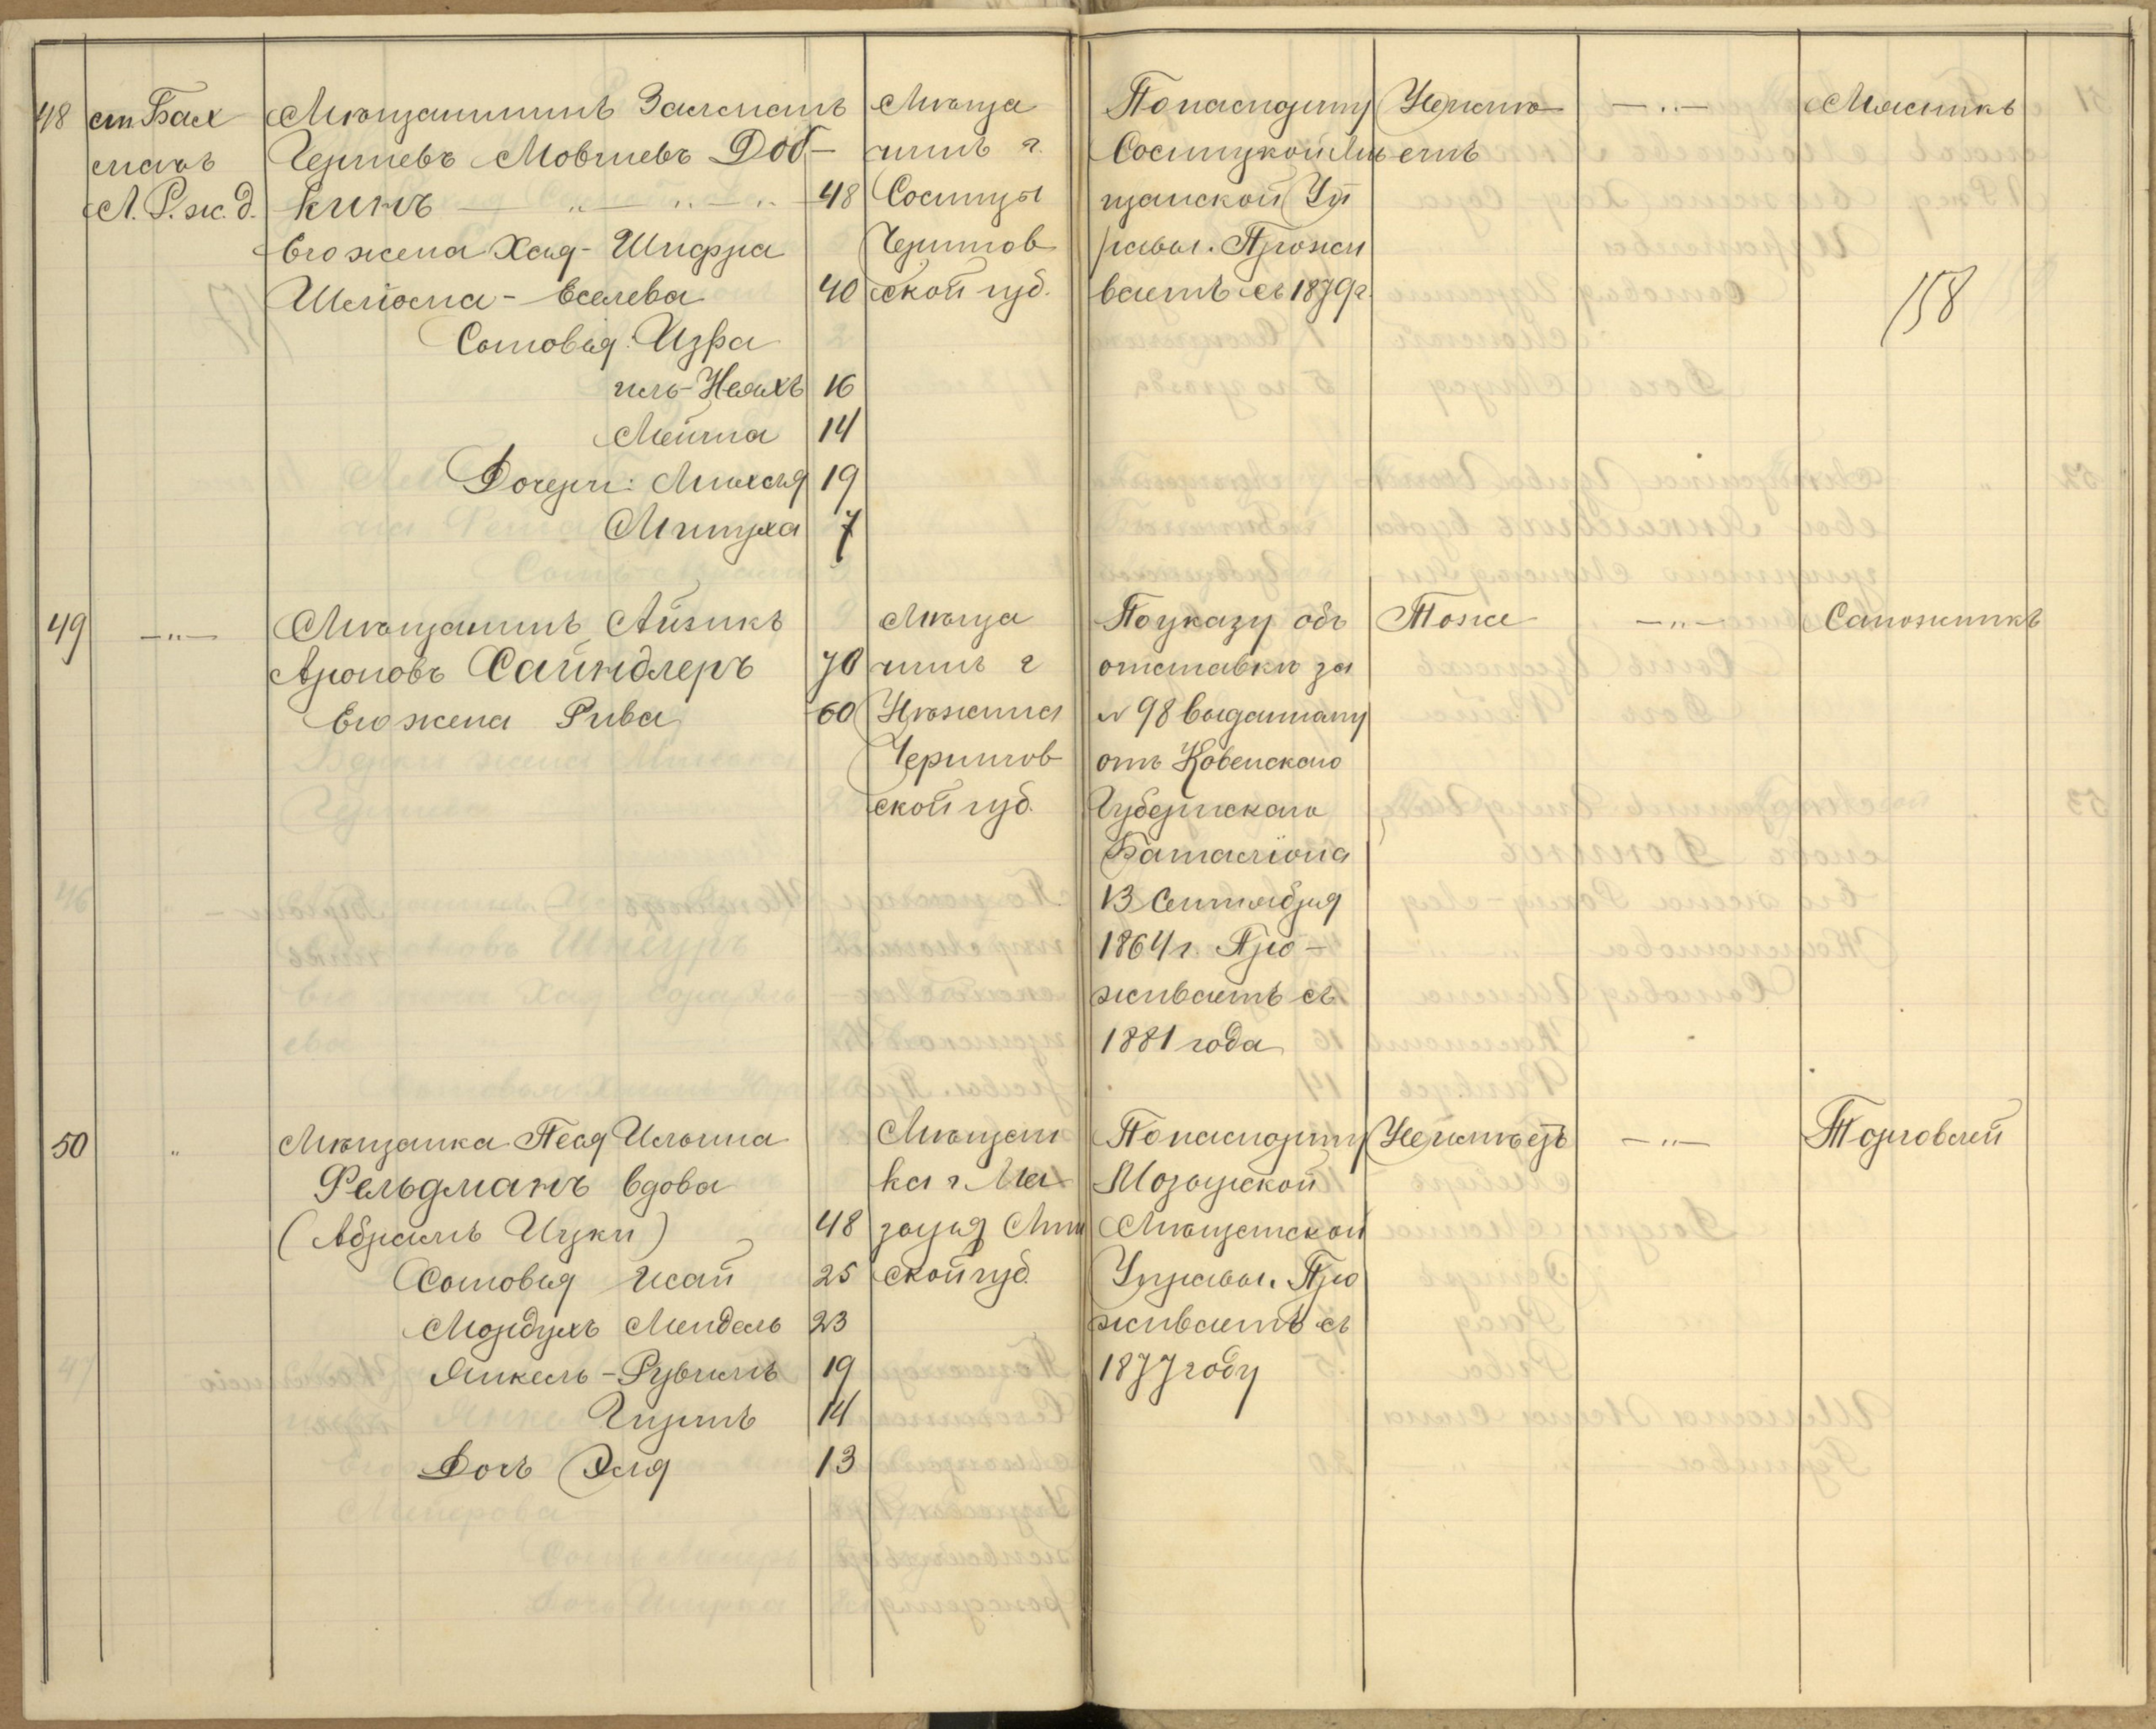 48
ст. Бах
мачь
Л. Р. ж. д.
Мѣщанинъ Залманъ
Гершевъ Мовшевъ Доб-
кинъ — „ — „ — „ 48
Его жена Хая-Шифра
Шлiома-Еселева 40
Сыновья: Изра
иль-Ноахъ 16
Мейша 14
Дочери: Михля 19
Митуха 7
Мѣща
нинъ г.
Сосницы
Чернигов
ской губ.
По паспорту
Сосницкой Мѣ
щанской Уп
равы. Прожи
ваетъ съ 1879 г.
Неимѣ
етъ
— „ —
Мясникъ
158
49
— „ —
Мѣщанинъ Айзикъ
Ароновъ Сайндлеръ 70
Его жена Рива 60
Мѣща
нинъ г
Нѣжина
Чернигов
ской губ.
По указу объ
отставкѣ за
№ 98 выданному
отъ Ковенскаго
Губернскаго
Баталiона
13 Сентября
1864 г. Про-
живаетъ съ
1881 года
Тоже
— „ —
Сапожникъ
50
„
Мѣщанка Песя Ильина
Фельдманъ вдова
(Абрамъ Ицки) 48
Сыновья Исай 25
Мордухъ Мендель 23
Янкель-Рувимъ 19
Гиршъ 14
Дочь Эля 13
Мѣщан
ка г. Мо
зыря Мин
ской губ.
По паспорту
Мозырской
Мѣщанской
Управы. Про
живаетъ съ
1877 году
Неимѣетъ
— „ —
Торговлей